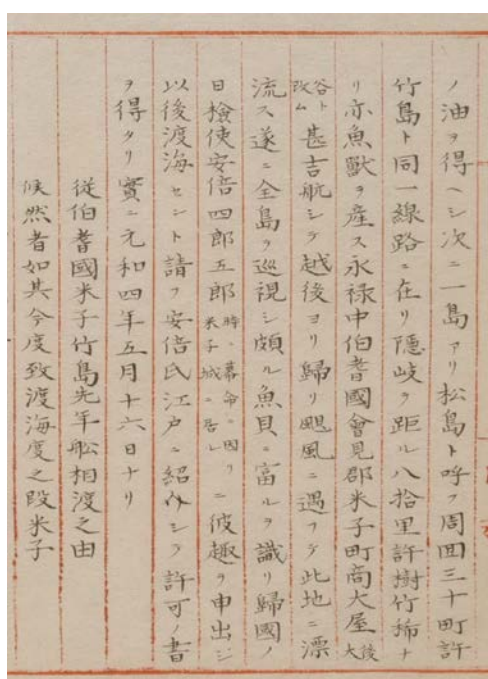 ノ油ヲ得ヘシ次ニ一島アリ松島ト呼フ周回三十町許
竹島ト同一線路ニ在リ隠岐ヲ距ル八拾里許樹竹稀ナ
リ亦魚獣ヲ産ス永禄中伯耆國會見郡米子町商大屋後大
谷ト改ム甚吉航シテ越後ヨリ歸リ颶風ニ遇フテ此地ニ漂
流ス遂ニ全島ヲ巡視シ頗ル魚貝ニ富ルヲ識リ歸國ノ
日檢使安倍四郎五郎時ニ幕命ニ因リ米子城ニ居ルニ彼趣ヲ申出シ
以後渡海セント請フ安倍氏江戸ニ紹介シテ許可ノ書
ヲ得タリ實ニ元和四年五月十六日ナリ
從伯耆國米子竹島先年舩相渡之由
候然者如其今度致渡海度之段米子